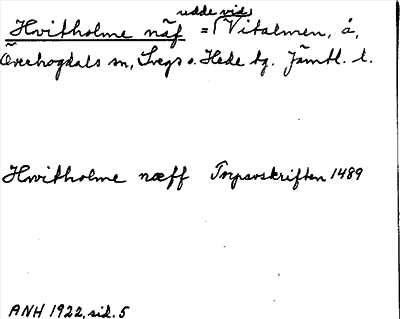 Hvitholme näf = udde vid Vitalmen, å,
Överhogdals sn, Svegs o. Hede tg. Jämtl. l.
Hwitholme næff Torpavskriften 1489
ANH 1922, sid. 5